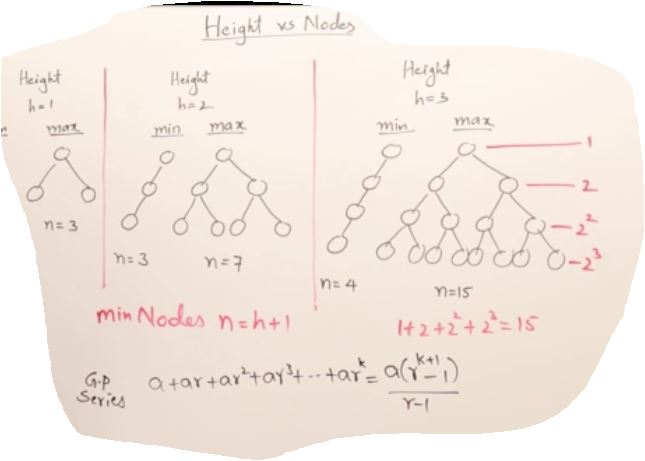 Height vs Nodes
Height
h=1
max
n=3
Height
h=2
min max
n=3 n=7
Height
h=3
min max
1
2
2²
2³
n=4 n=15
min Nodes n=h+1
1+2+2²+2³=15
G.P Series a+ar+ar²+ar³+...+ar^k = a(r^(k+1)-1)
r-1